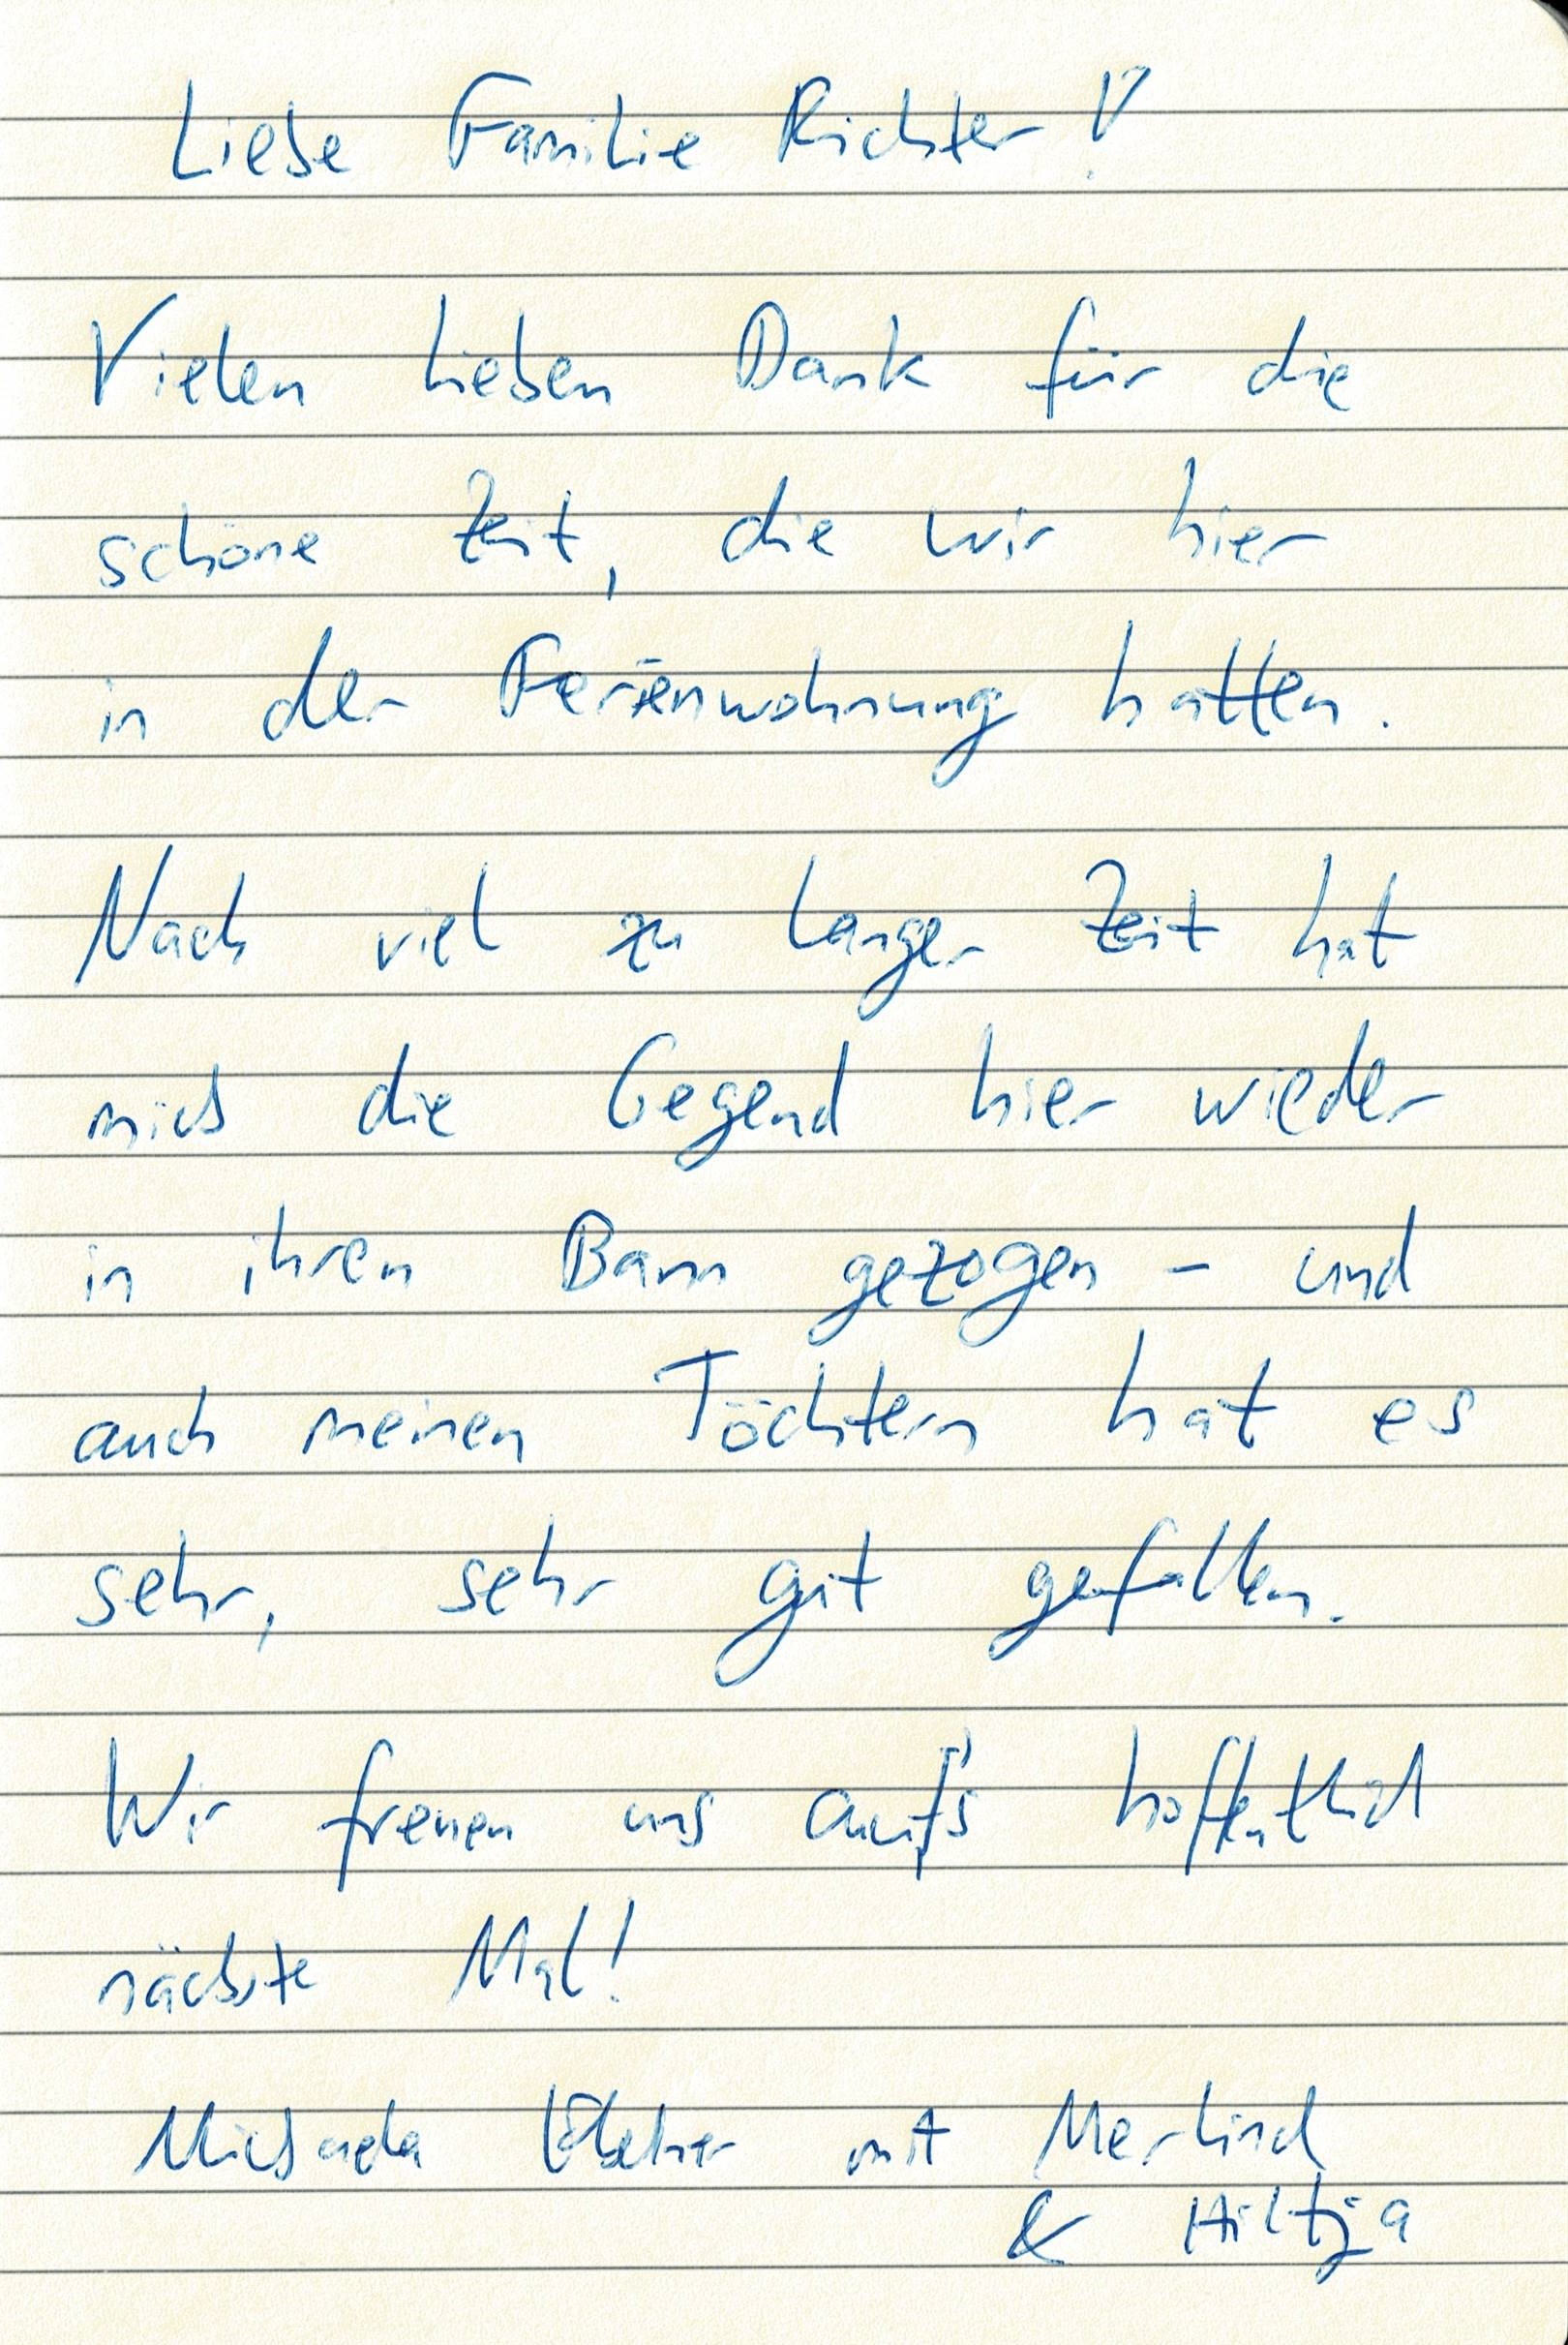 Liebe Familie Richter!
Vielen lieben Dank für die
schöne Zeit, die wir hier
in der Ferienwohnung hatten.
Nach viel zu langer Zeit hat
mich die Gegend hier wieder
in ihren Bann gezogen - und
auch meinen Töchtern hat es
sehr, sehr gut gefallen.
Wir freuen uns auf's hoffentlich
nächste Mal!
Michaela mit Merlind
& Hiltja